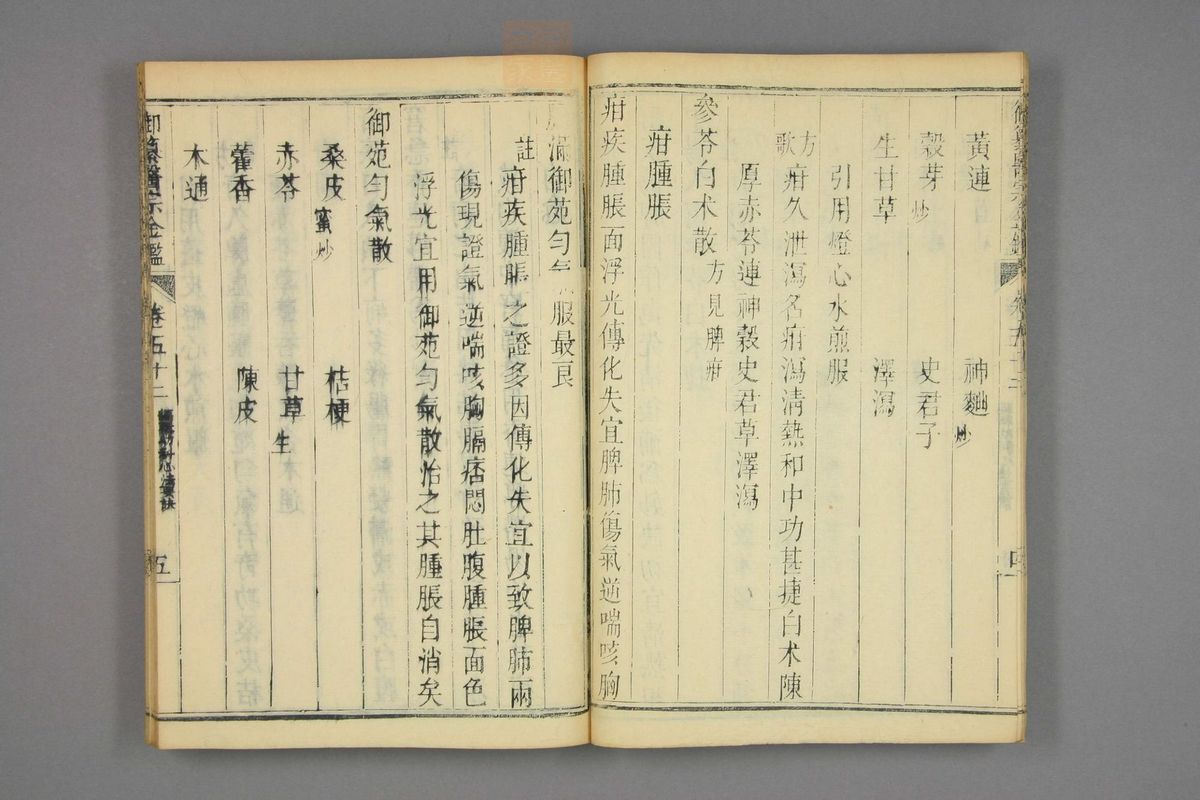 黃連 神麯炒
穀芽炒 史君子
生甘草 澤瀉
引用燈心水煎服
方歌 疳久泄瀉名疳瀉清熱和中功甚捷白术陳
厚赤苓連神穀史君草澤瀉
參苓白术散方見脾疳
疳腫脹
疳疾腫脹面浮光傳化失宜脾肺傷氣逆喘咳胸
滿御苑勻氣服最良
註 疳疾腫脹之證多因傳化失宜以致脾肺兩
傷現證氣逆喘咳胸膈痞悶肚腹腫脹面色
浮光宜用御苑勻氣散治之其腫脹自消矣
御苑勻氣散
桑皮蜜炒 桔梗
赤苓 甘草生
藿香 陳皮
木通
御纂醫宗金鑑 卷五十二 五